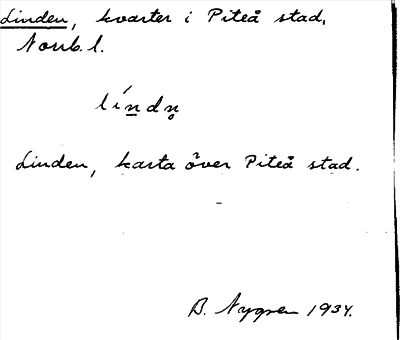 Linden, kvarter i Piteå stad,
Norrb. l.
líndn̥
Linden, karta över Piteå stad.
B. Nygren 1934.